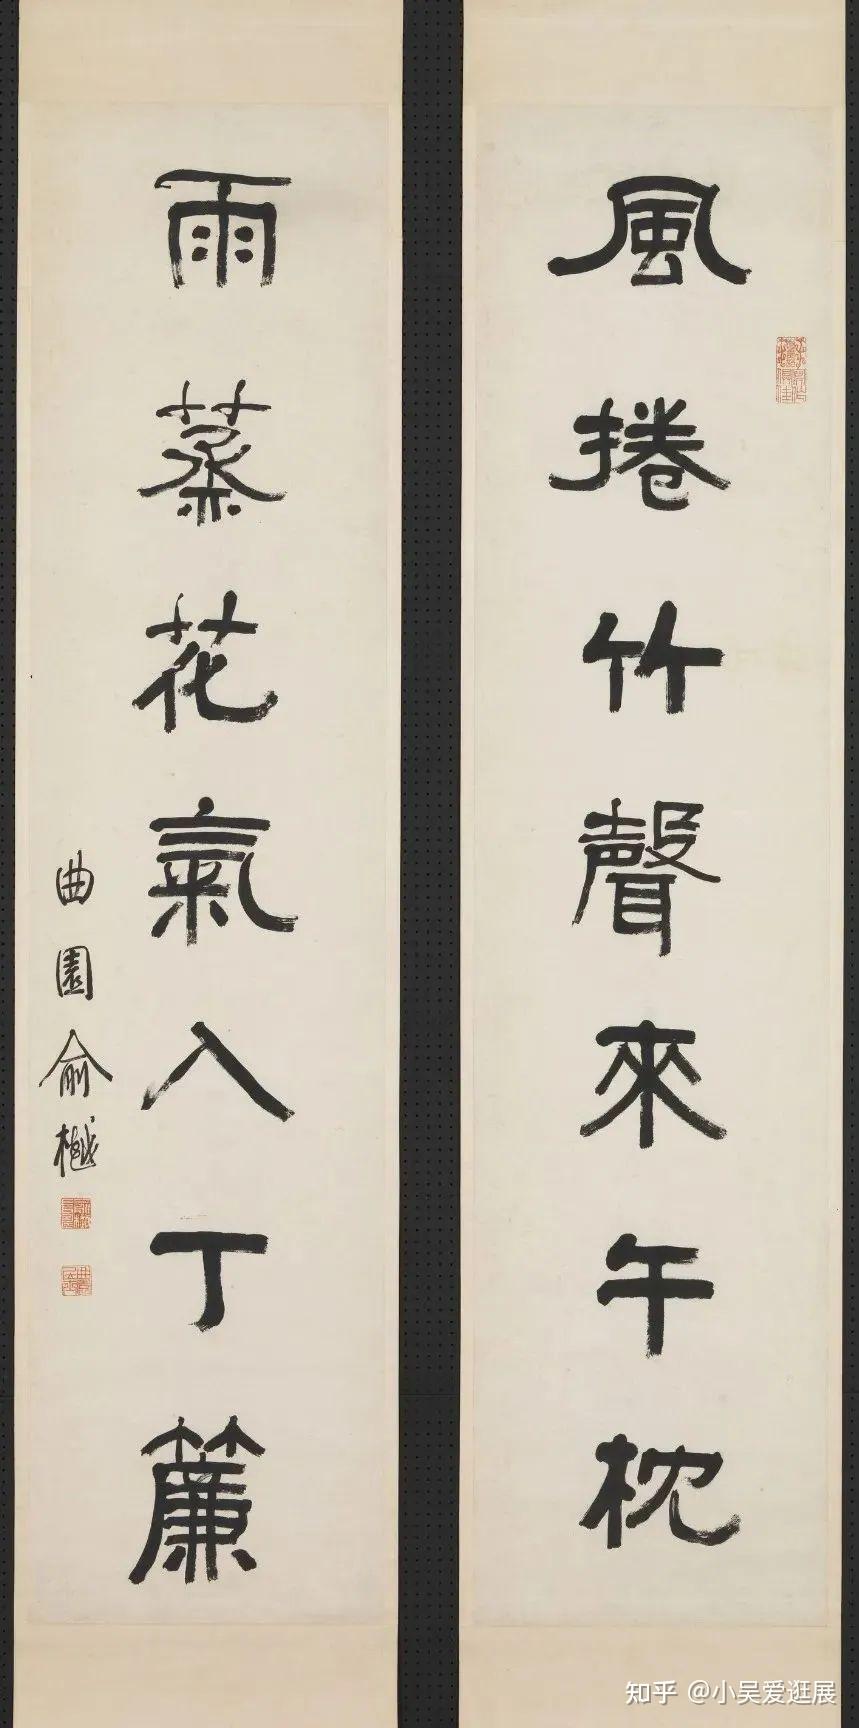 風捲竹聲來午枕
雨蒸花氣入丁簾
曲園俞樾
知乎 @小吴爱逛展